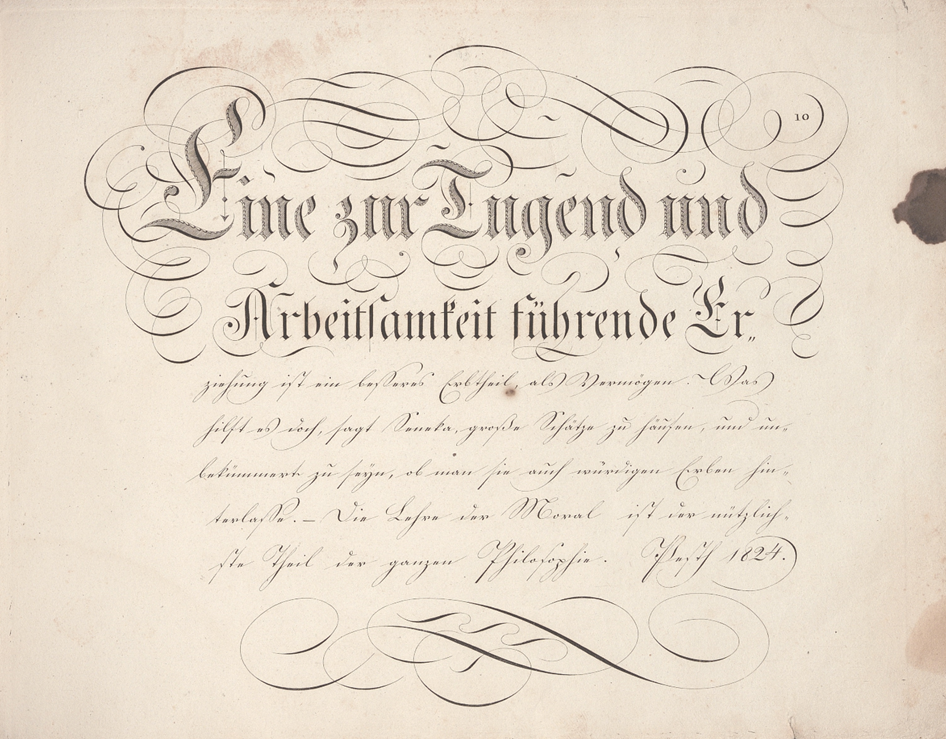 10
Eine zur Tugend und
Arbeitsamkeit führende Er„
ziehung ist ein besseres Erbtheil, als Vermögen. – Was
hilft es doch, sagt Seneka, große Schätze zu häufen, und un-
bekümmert zu seyn, ob man sie auch würdigen Erben hin-
terlasse. – Die Lehre der Moral ist der nützlich-
ste Theil der ganzen Philosophie. Pesth 1824.